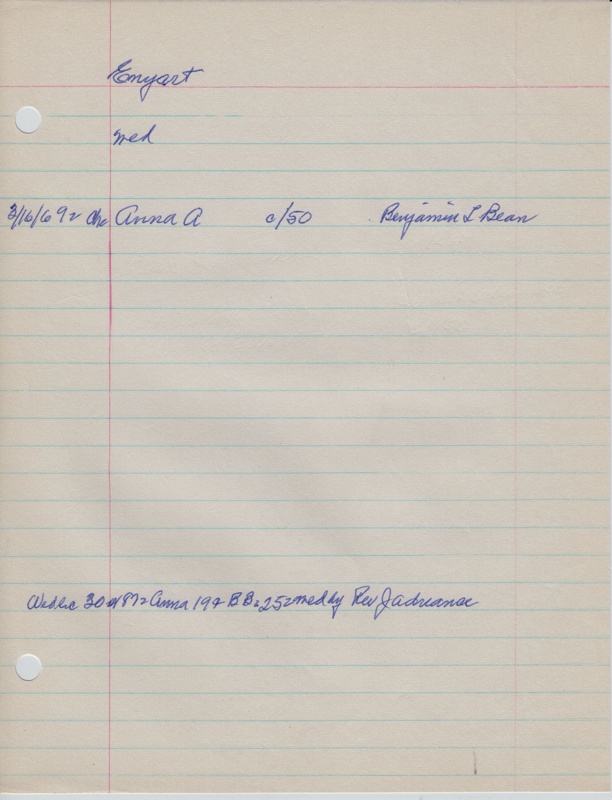 Emyart
med
3/16/69 Anna A c/50 Benjamin L Bean
30 Anna 19 & BB 25 med by Rev J Adriance